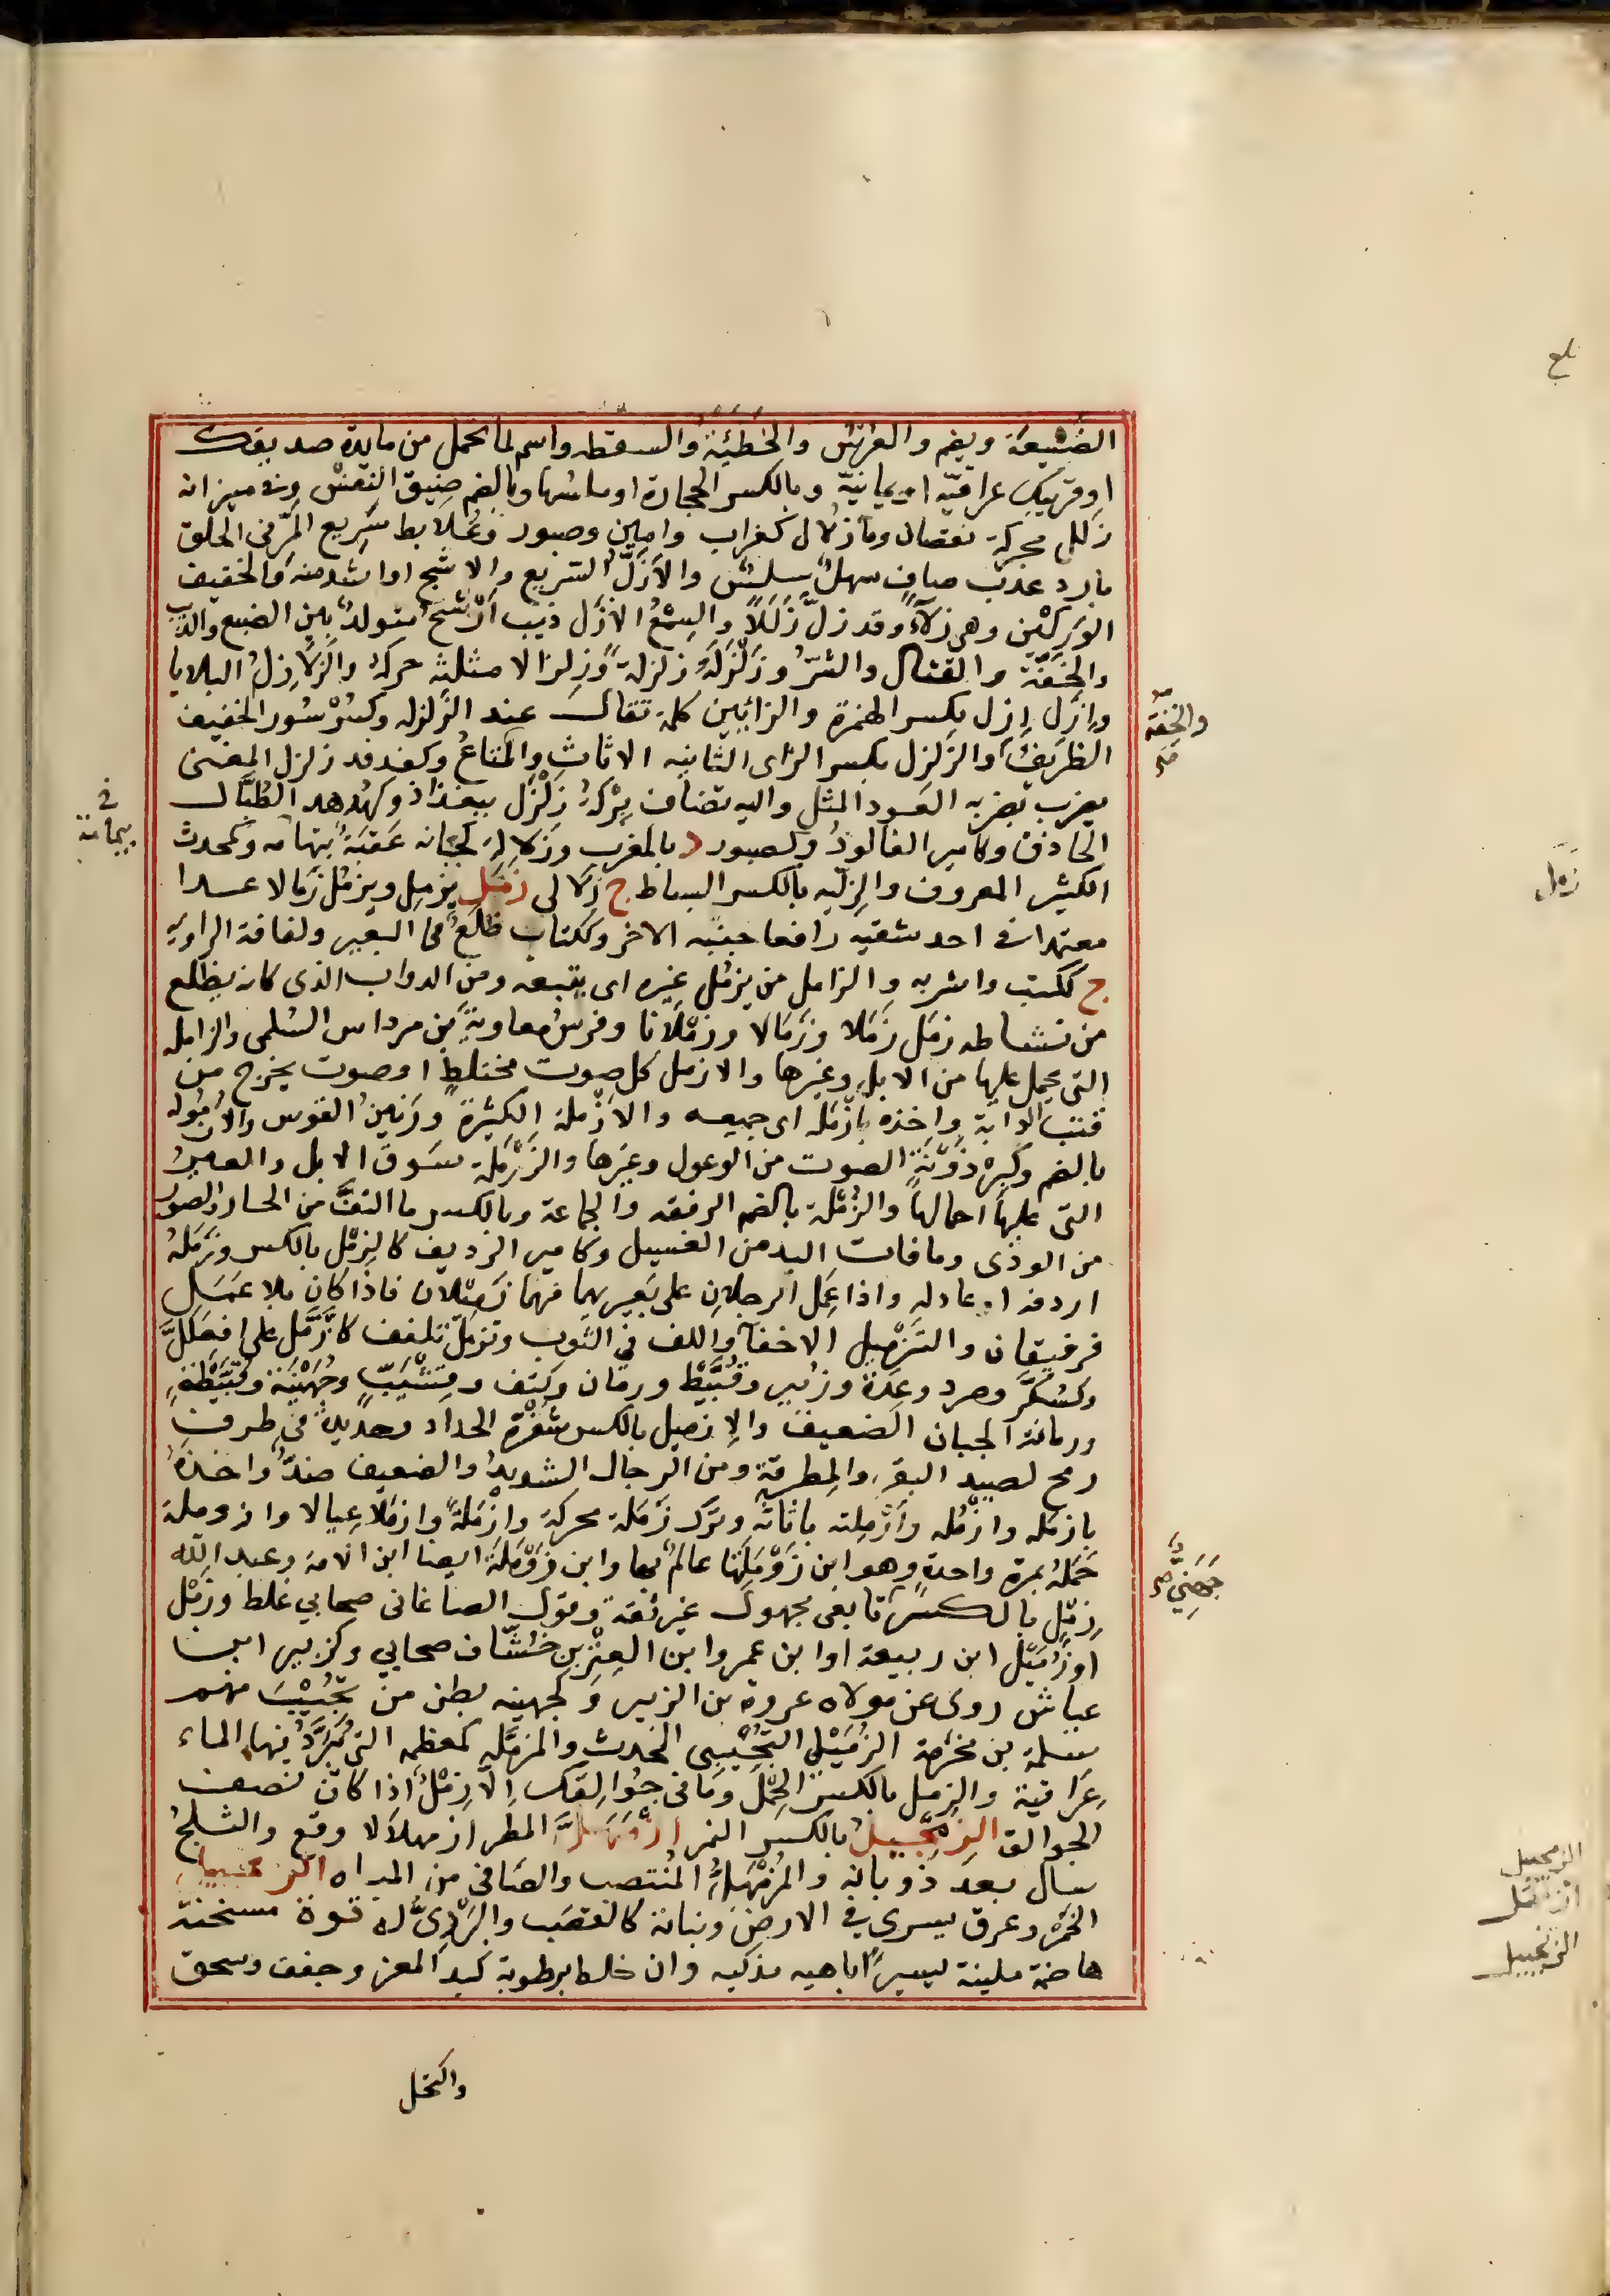 الضَّنِيعَة ويضم والعُرْسُ والخَطِيْئَةُ والسقطه واسم لما تحمل من مايدة صديقك
او قريبك عراقيّه او يمانيّة وبالكسر الحجارة او ملسُها وبالضم ضِيق النفَسْ وفى ميزانه
زَلَل محركة نقصان وماءٌ زُلال كغراب وامير وصبور وعُلابط سَرِيع المَرّ فى الحلق
بارد عذبٌ صافٍ سهلٌ سلسٌ والأَزَلُّ السَّريع والاشجّ او اشد منه والخفيف
الوَرِكَيْن وهى زلّاءُ وقد زلَّ زَلَلاً والسِمْعُ الازَل ذيب أَرْسَح متولدٌ بين الضبع والذيب
والخِفّة والقتال والشرّ وزَلْزَلَهُ زلزلة وزِلزالا مثلثه حركهُ والزَّلازِلُ البلايا
وإزِلْزِل بكسر الهمزة والزائيين كلمة تقال عند الزلزله وكسُرْسُور الخفيف
الظريفُ والزَلَزِل بكسر الزاى الثانيه الاثاثِ والمتاعُ وكفدفد زلزل المغنى
يضرب بضربه العَود المثل واليه تضاف بِرْكةُ زلْزَل ببغذاذ وكهُدهد الطَبَّال
الحاذق وكامير الفالوذُ وكصبور د بالمغرب وزَلالة كجبانه عَقبَةٌ بتهامه وكمحدث
الكثير المعروف والزِليّه بالكسر البساط ج زَلالى زَمَل يزمِل ويزمُل زَمالا عدا
معتمدا فى احد شقيه رافعا جنبه الاخر وككتاب ظَلْعٌ فى البعير ولفافة الراويه
ج ككتب واشربه والزامل من يزمُل غيره اى يتبعه ومن الدواب الذى كانه يظلع
من نشاطه زمَل زَمَلا وزَمَالا وزمْلَانا وفرسُ معاوية بن مرداس السُلمى والزامله
التى يحمل عليها من الابل وغيرها والازمل كل صوت مختلطٍ او صوت يخرج من
قنب الدابة واخذه بازْمَله اى جميعه والأزْملة الكثيرة ورَنين القوس والأزمُوله
بالضم وكبِرْذَوْنةٍ الصوت من الوعول وغيرها والزَوْمَلة سَوق الابل والعيرُ
التى عليها احمالها والزُّمْلة بالضم الرفقه والجماعة وبالكسر ما التفَّ من الجبار والصور
من الودى وما فات اليد من الفسيل وكامير الرديف كالزِمْل بالكسر وزَمَلهُ
اردفه او عادله واذا عَمِل الرجلان على بَعيريهما فهما زَميلان فاذا كان بلا عَمَل
فرفيقان والتَزْميل الاخفآ واللف فى الثوب وتزمّل تلفف كازَّمَّل على افعّل
وكسُكَّر وصرد وعِدة وزبير وقُبَّيْط ورمّان وكتف وقِسْيَبٍّ وجُهَيْنة وقُبَّيْطةٍ
ورمانة الجبان الضعيف والإزميل بالكسر شَفْرة الحداد وحديدةٌ فى طرف
رمح لصيد البقر والمِطرقة ومن الرجال الشديدُ والضعيف ضدٌ واخذهُ
بازمله وازْمُله وأَزْمِلته باثاثه وترَك زَمَلة محركة وازْمَلةً وازمَلاً عِيالا وازدملة
حَمَلهُ بمرة واحدة وهو ابن زَوْمَلتها عالم بها وابن زَوْمَلةَ ايضا ابن الامة وعبد الله
زِمْلٍ بالكسر تابعى مجهول غير ثقة وقول الصاغانى صحابي غلط وزمْل
او زُمَيْل ابن ربيعة او ابن عمرو ابن العِتْرِ بن خَشّاف صحابي وكزبير ابن
عياش روى عن مولاه عروة بن الزبير وكجهينه بطن من تُجِيْبَ منهم
سلمة بن مخرَمة الزُمَيْلى التُجِيْبى المحدث والمزمَّله كمعظمه التى يُبَرَّدُ فيها الماء
عِرَاقية والزمل بالكسر الحِمْل وما فى جُوالِقك الّا زِمْلٌ اذا كان نصف
الجوالق الزِمْجيل بالكسر النمر ازْمَهلَّ المطر ازمهلالا وقع والثلجُ
سال بعدَ ذوبانه والمُزْمَهلُّ المُنتصب والصَافى من المياه الزنجبيل
الخمْر وعرق يسرى فى الارض ونباته كالقصَب والبَرْدىّ له قوة مسخنة
هاضمة ملينة يسيرًا باهيه مذكيه وان خلط برطوبة كبد المعز وجفف وسحق
واكتحل
والخفّة
صح
يمانة
جُهَنِيّ
صح
بلغ
زمل
الزمجيل
ازمهل
الزنجبيل